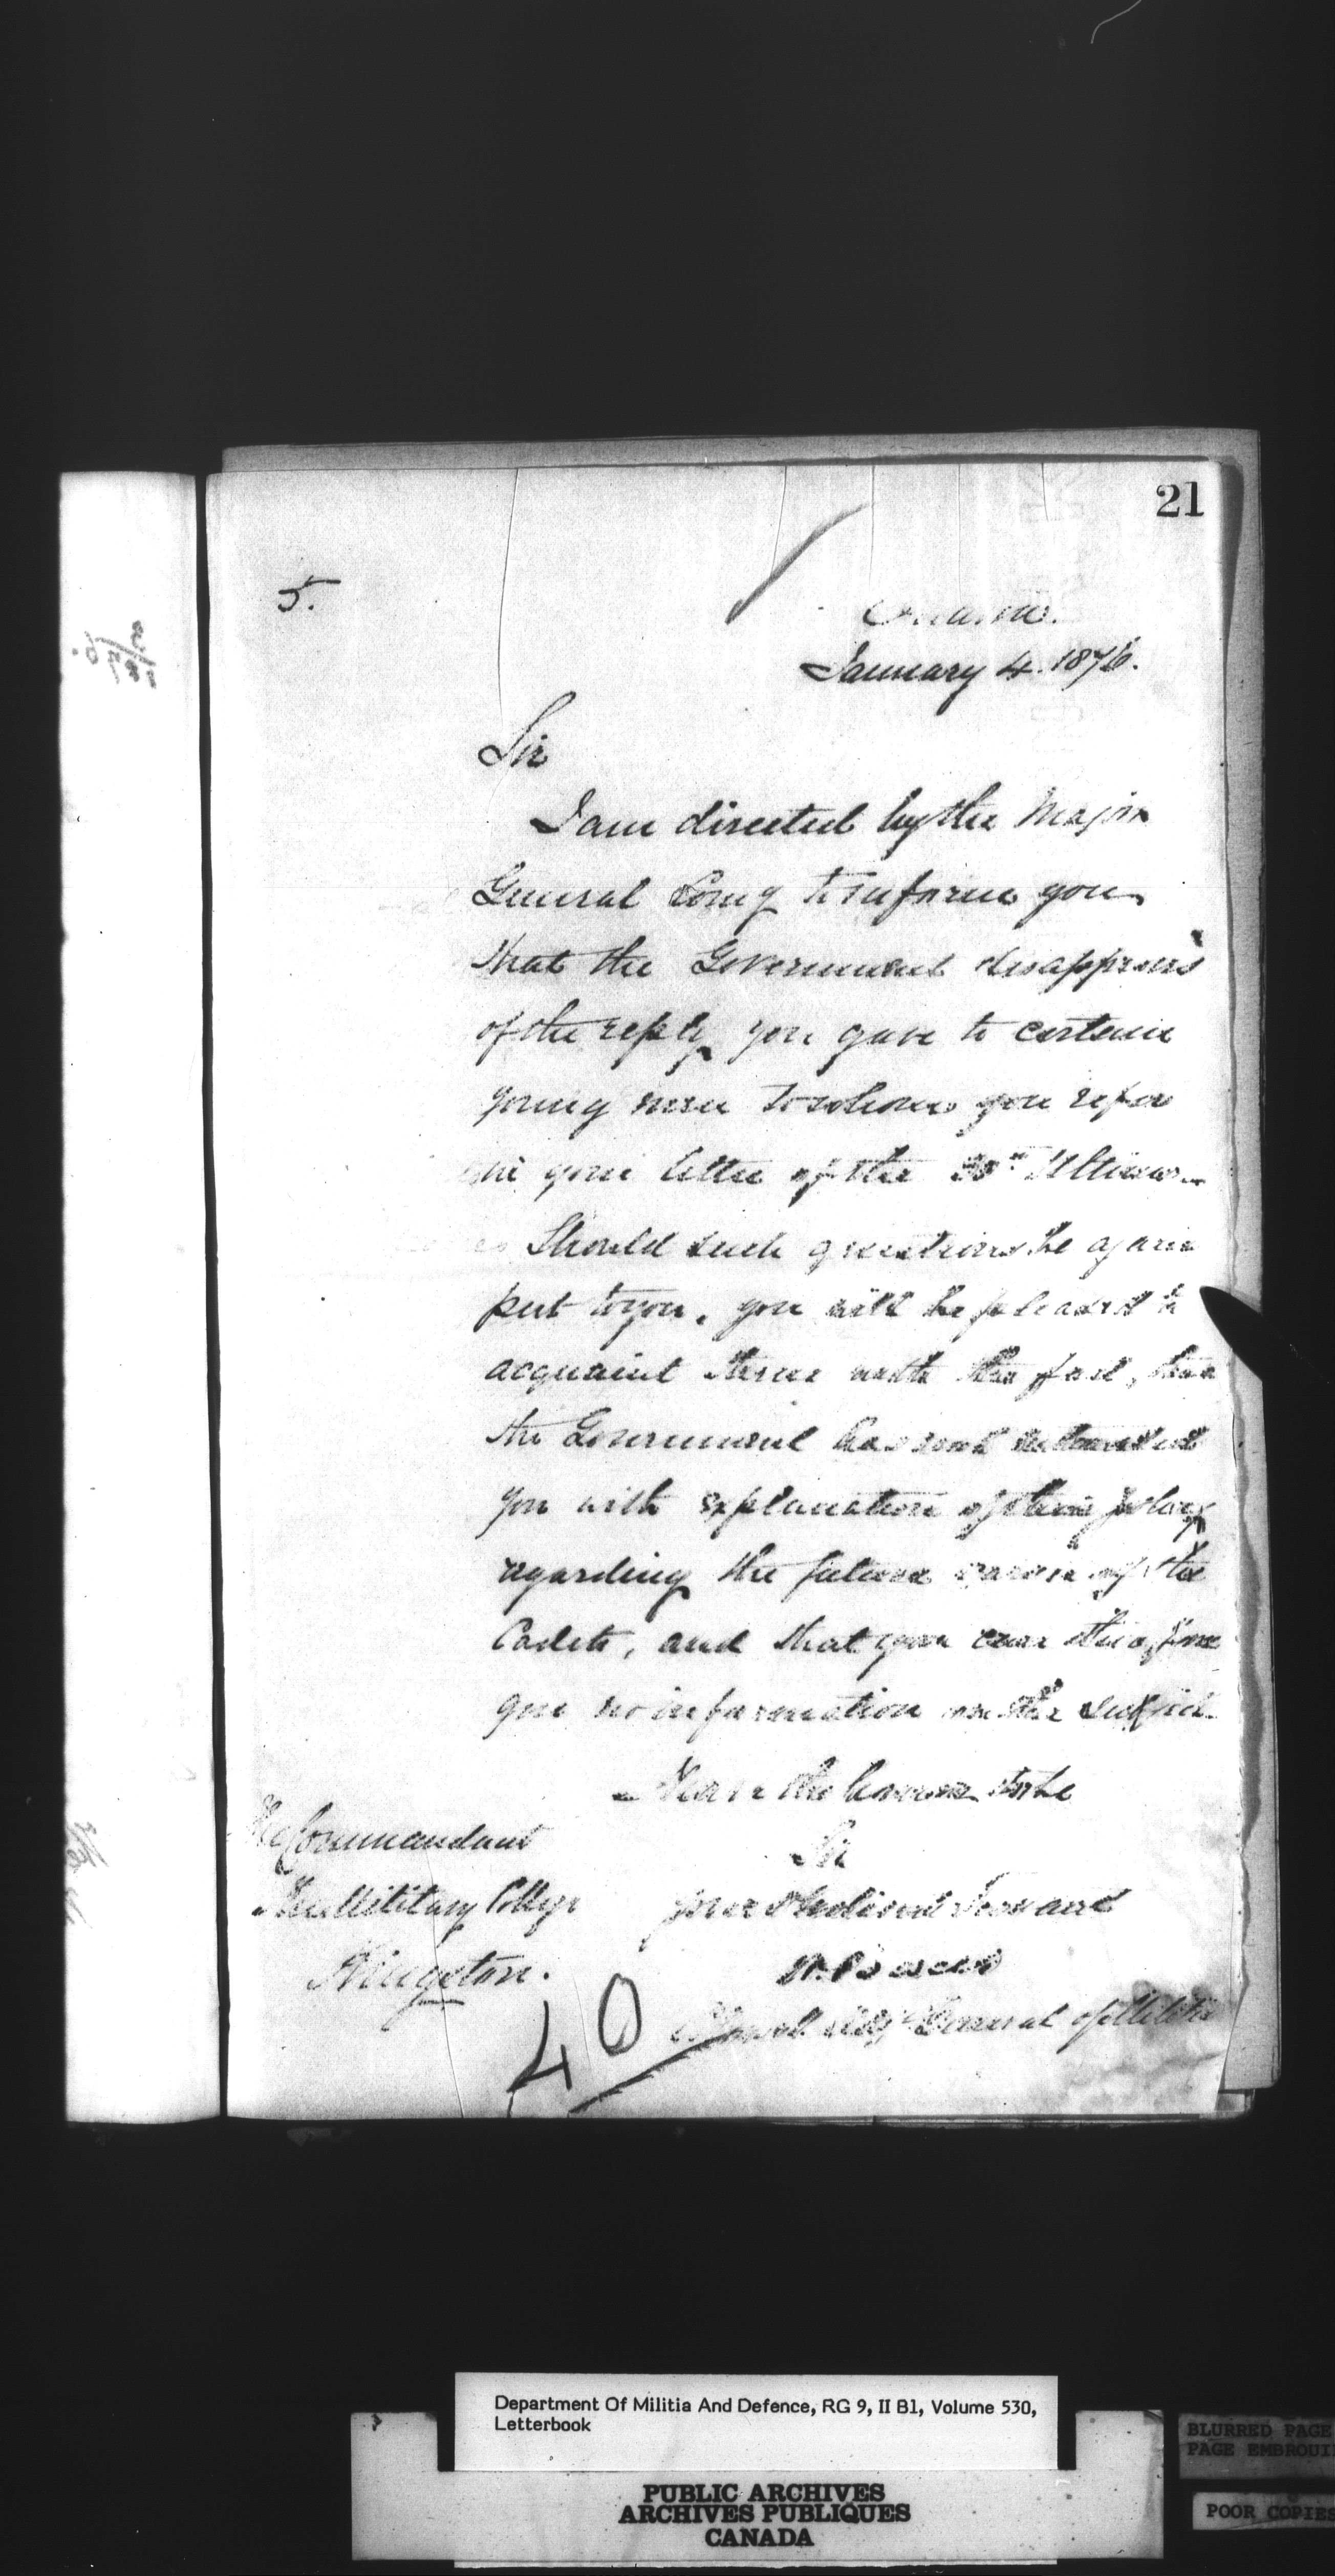 21
5.
Ottawa.
January 4. 1876.
Sir
I am directed by the Major
General Comg to inform you
that the Government disapproves
of the reply you gave to certain
young men to whom you refer
in your letter of the Ultimo.
Should such questions be again
put to you, you will be pleased to
acquaint them with the fact, that
the Government has not entrusted
you with explanation of their policy
regarding the future career of the
Cadets, and that you can therefore
give no information on the subject.
I have the honor to be
Sir
your obedient Servant
W. Powell
Adjt General of Militia
The Commandant
The Military College
Kingston.
40
Department Of Militia And Defence, RG 9, II B1, Volume 530,
Letterbook
PUBLIC ARCHIVES
ARCHIVES PUBLIQUES
CANADA
BLURRED PAGE
PAGE EMBROUI
POOR COPIES